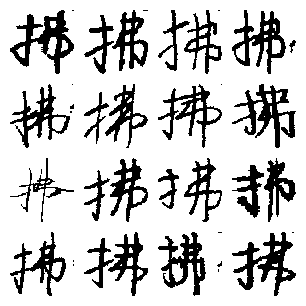 拂拂拂拂
拂拂拂拂
拂拂拂拂
拂拂拂拂